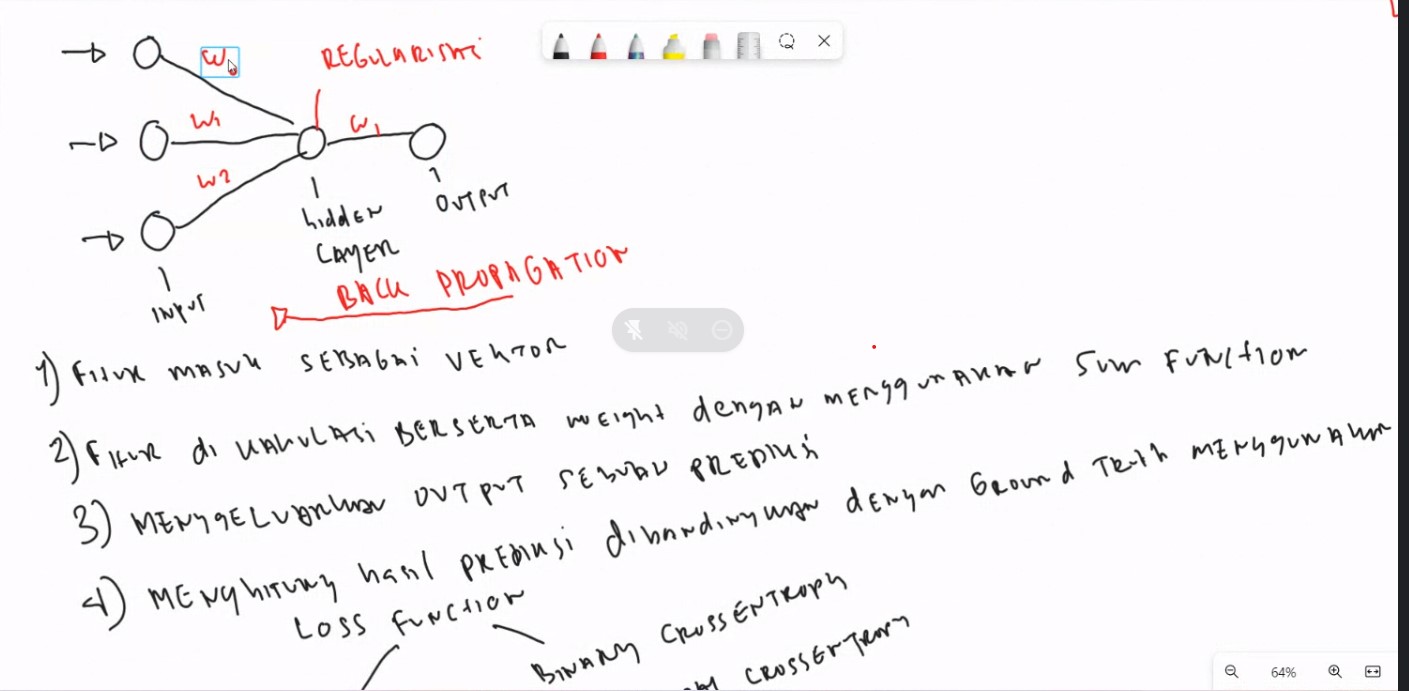 W
REGULARISASI
W1
W1
W2
hidden
LAYER
OUTPUT
INPUT
BACK PROPAGATION
1) FITUR MASUK SEBAGAI VEKTOR
2) FITUR di KALKULASI BERSERTA WEIGHT dengAN MENggUNAKAN SUM FUNCTION
3) MENGGELUARKAN OUTPUT SEBUAH PREDIKSI
4) MENghitung hasil PREDIKSI dibandingkan dengan Ground Truth MENggUNAKAN
LOSS FUNCTION
BINARY CROSSENTROPY
CROSSENTROPY
64%